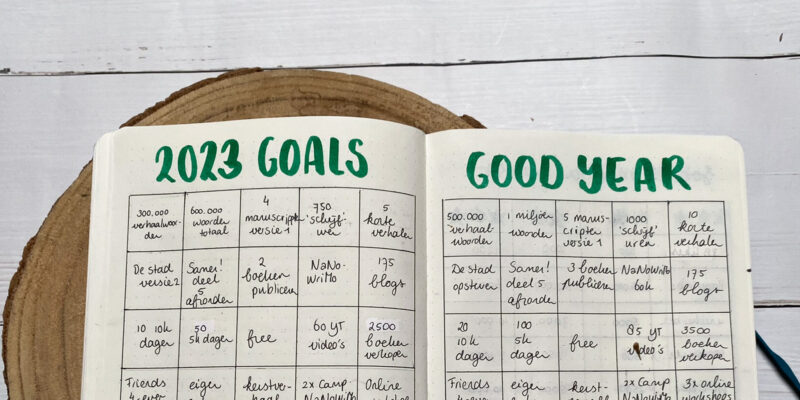 2023 GOALS
300.000
verhaalwoor-
den
600.000
woorden
totaal
4
manuscripten
versie 1
750
'schijf'
uren
5
korte
verhalen
De stad
versie 2
Samen!
deel
5
afronden
2
boeken
publiceren
NaNo-
WriMo
175
blogs
10 10k
dagen
50
5k dagen
free
60 YT
video's
2500
boeken
verkopen
Friends
4-ever
eigen
kerstver-
haal
2x Camp
NaNoWriMo
Online
GOOD YEAR
500.000
verhaal-
woorden
1 miljoen
woorden
5 manus-
cripten
versie 1
1000
'schijf'
uren
10
korte
verhalen
De stad
opsturen
Samen!
deel 5
afronden
3 boeken
publiceren
NaNoWriMo
60k
175
blogs
20
10k
dagen
100
5k
dagen
free
85 YT
video's
3500
boeken
verkopen
Friends
4-ever
eigen
kerst-
2x Camp
NaNoWriMo
3x online
workshops